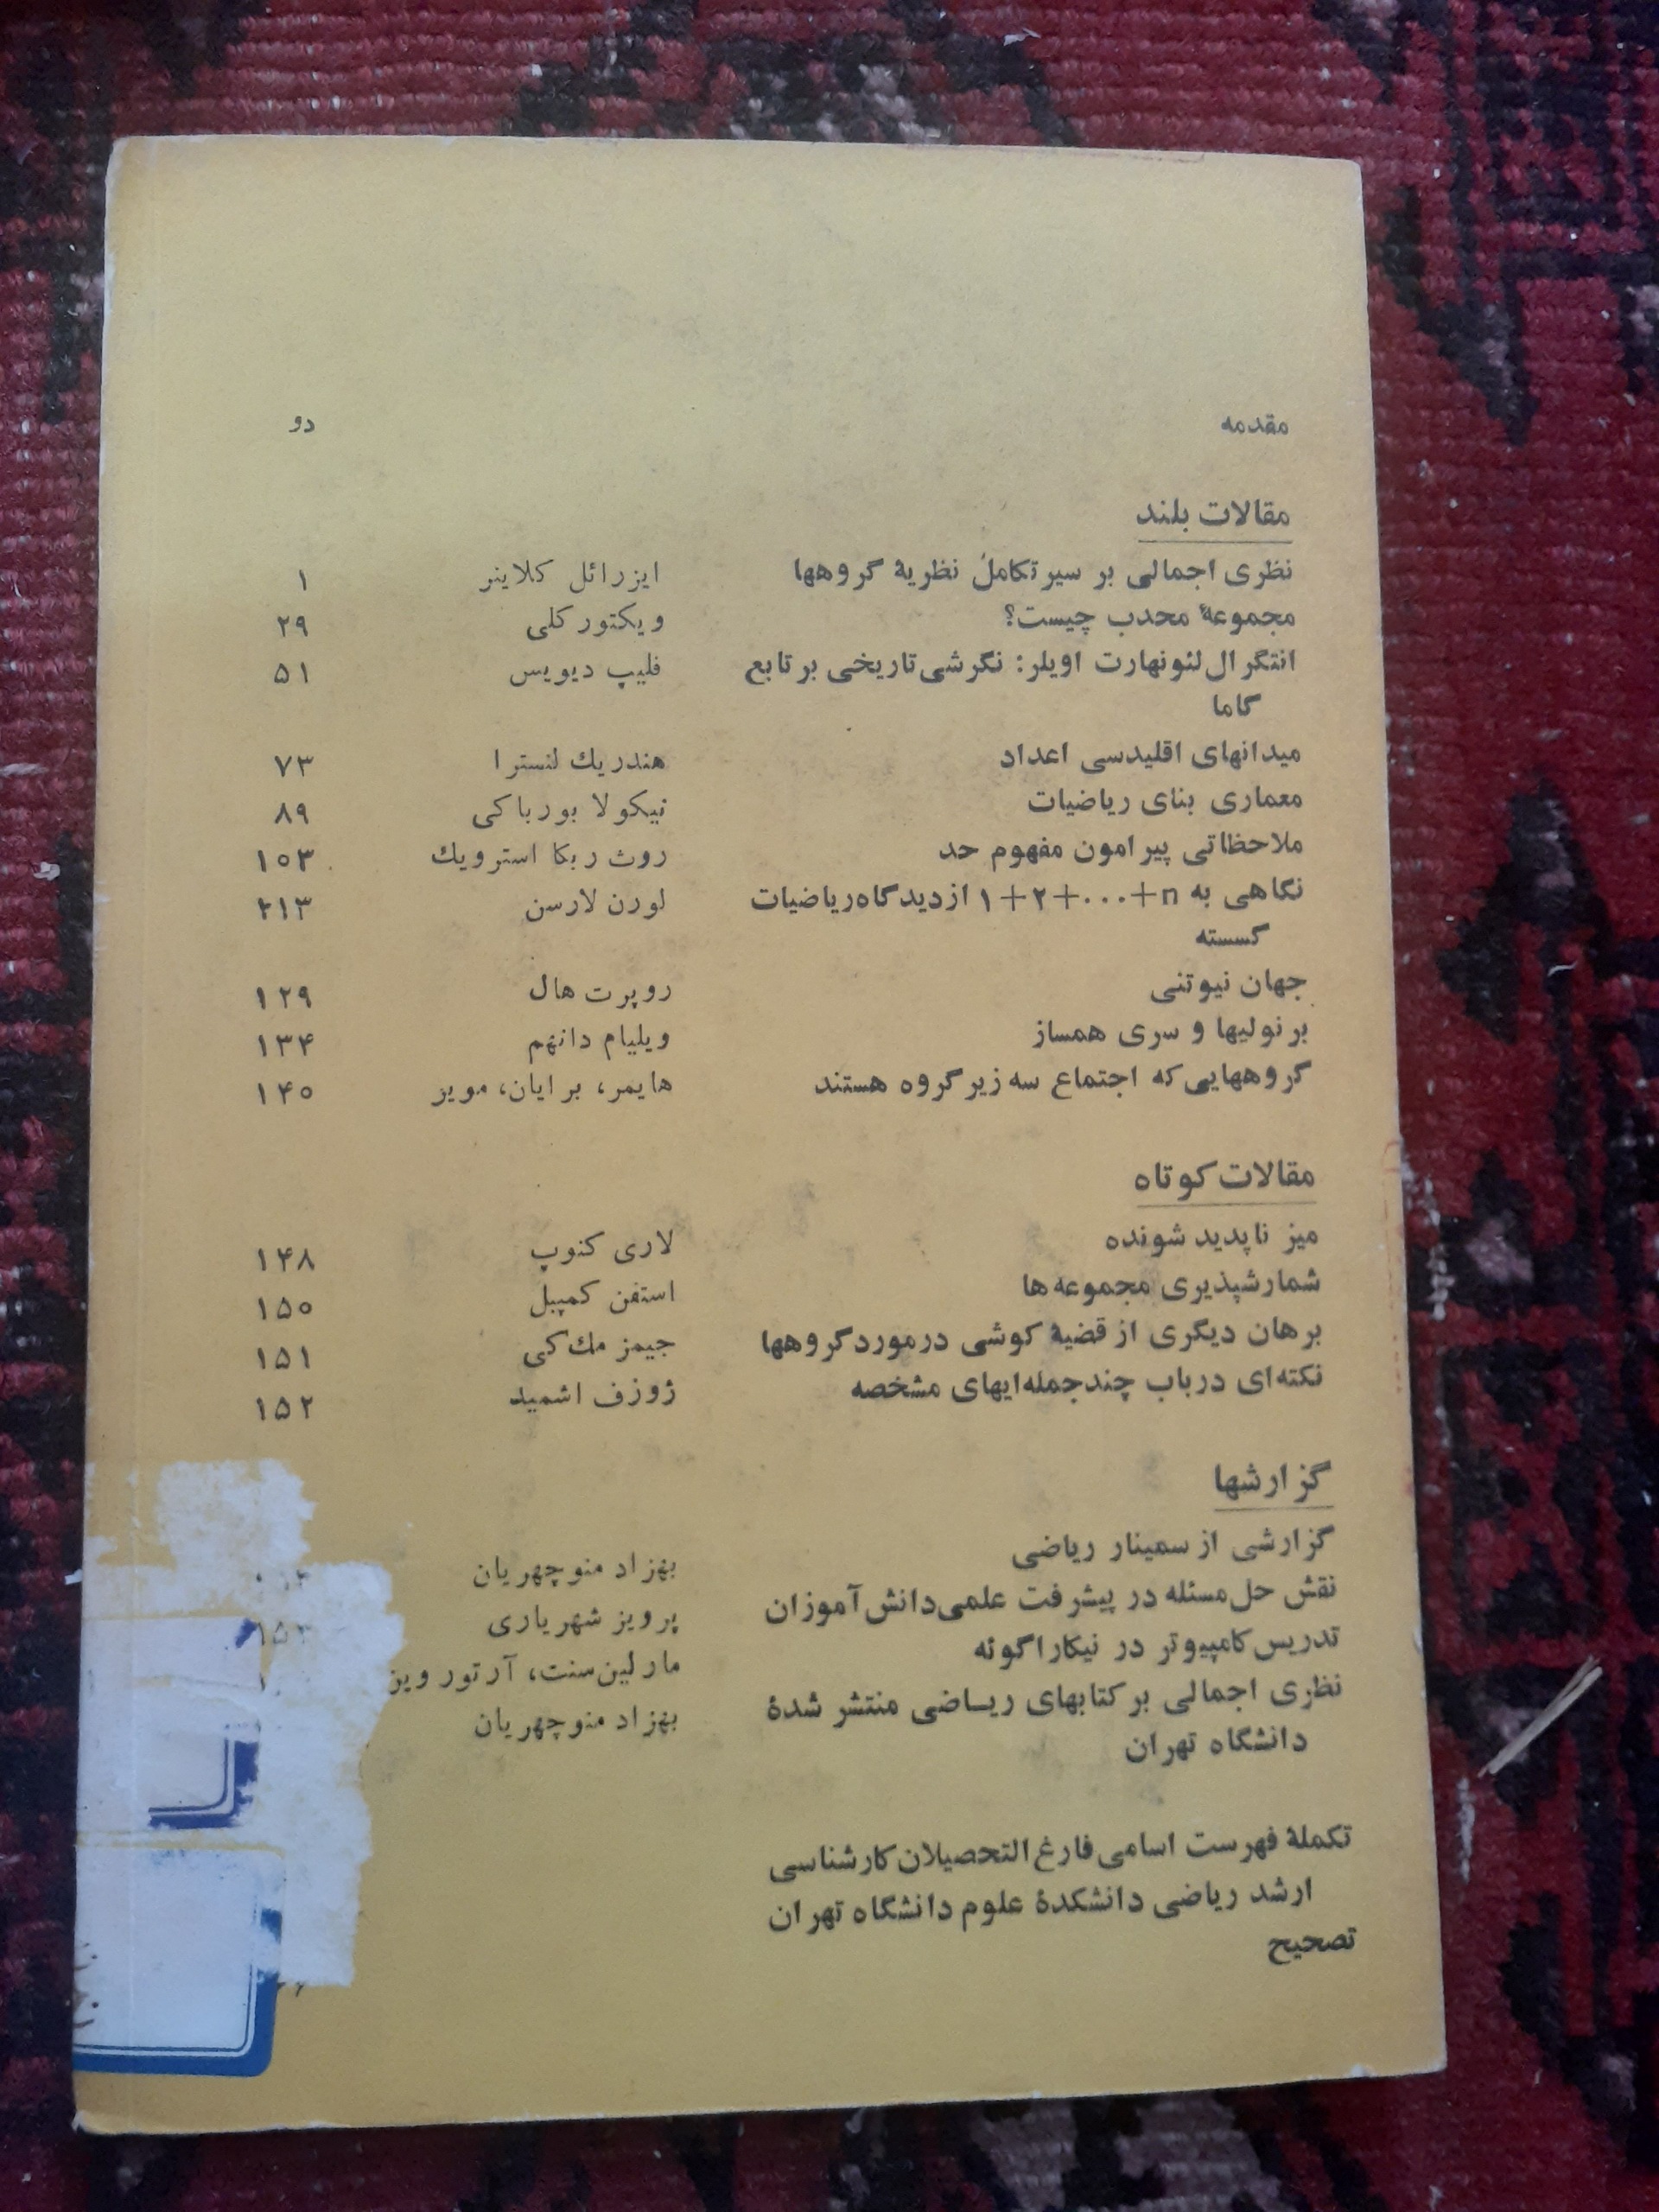 مقدمه دو
مقالات بلند
نظری اجمالی بر سیر تکامل نظریهٔ گروهها ایزرائل کلاینر ۱
مجموعهٔ محدب چیست؟ ویکتور کلی ۲۹
انتگرال لئونهارت اویلر: نگرشی تاریخی بر تابع فلیپ دیویس ۵۱
گاما
میدانهای اقلیدسی اعداد هندریك لنسترا ۷۳
معماری بنای ریاضیات نیکولا بورباکی ۸۹
ملاحظاتی پیرامون مفهوم حد روث ربکا استرویك ۱۰۳
نگاهی به ۱+۲+...+n از دیدگاه ریاضیات لورن لارسن ۲۱۳
گسسته
جهان نیوتنی روپرت هال ۱۲۹
برنولیها و سری همساز ویلیام دانهم ۱۳۴
گروههایی که اجتماع سه زیرگروه هستند هایمر، برایان، مویز ۱۴۰
مقالات کوتاه
میز ناپدید شونده لاری کنوپ ۱۴۸
شمارشپذیری مجموعه ها استفن کمپبل ۱۵۰
برهان دیگری از قضیهٔ کوشی در مورد گروهها جیمز مك کی ۱۵۱
نکته ای در باب چند جمله ایهای مشخصه ژوزف اشمید ۱۵۲
گزارشها
گزارشی از سمینار ریاضی بهزاد منوچهریان
نقش حل مسئله در پیشرفت علمی دانش آموزان پرویز شهریاری
تدریس کامپیوتر در نیکاراگوئه مارلین سنت، آرتور وین
نظری اجمالی بر کتابهای ریاضی منتشر شدهٔ بهزاد منوچهریان
دانشگاه تهران
تکملهٔ فهرست اسامی فارغ التحصیلان کارشناسی
ارشد ریاضی دانشکدهٔ علوم دانشگاه تهران
تصحیح